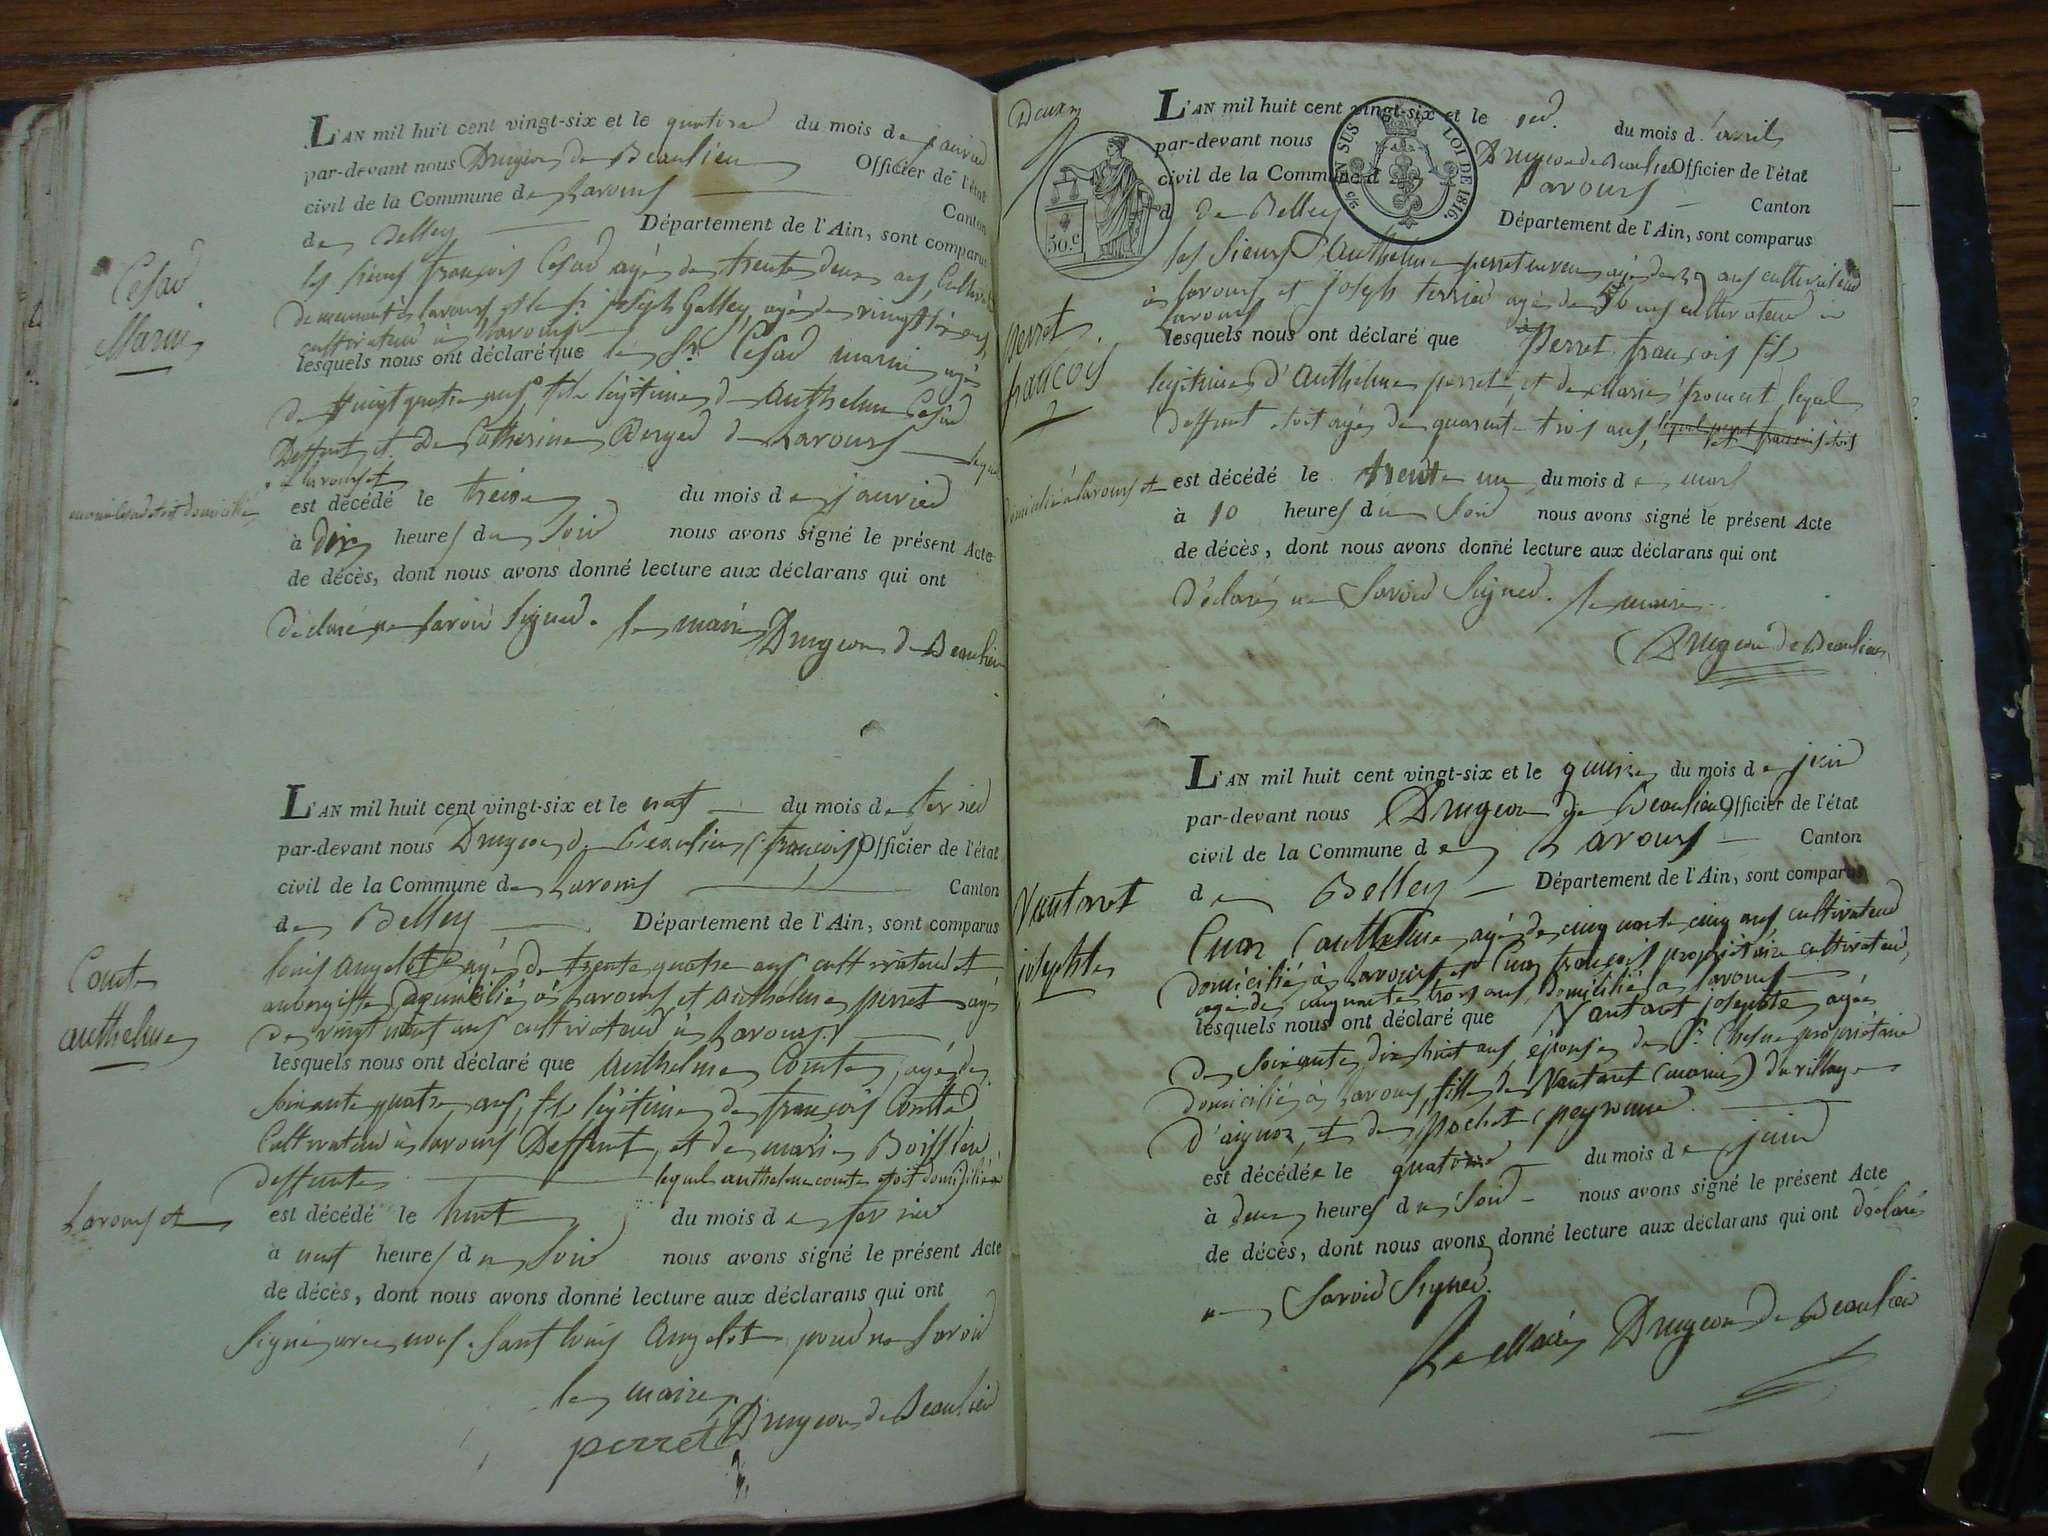 L'AN mil huit cent vingt-six et le quatorze du mois de janvier
par-devant nous Drugeon de Beaulieu Officier de l'état
civil de la Commune de Lavours Canton
de Belley Département de l'Ain, sont comparus
les sieurs françois Cesard agé de trente deux ans, Cultivateur
demeurant à lavours et le sr joseph Galley, agé de vingt ans
cultivateur à Lavours
lesquels nous ont déclaré que le Sr Cesard marin agé
de vingt quatre ans fils légitime de Anthelme Cesard
Deffunt et De Catherine Berger de Lavours lequel
à lavours et
est décédé le treize du mois de janvier
à dix heures du soir nous avons signé le présent Acte
de décès, dont nous avons donné lecture aux déclarans qui ont
déclaré ne savoir signer. le maire Drugeon de Beaulieu
Cesard
Marin
marin Cesard étoit domicilié
L'AN mil huit cent vingt-six et le neuf du mois de fevrier
par-devant nous Drugeon de Beaulieu (françois) Officier de l'état
civil de la Commune de Lavours Canton
de Belley Département de l'Ain, sont comparus
louis angelot agé de trente quatre ans cultivateur et
aubergiste domicilié à Lavours et anthelme perret agé
de vingt neuf ans cultivateur à Lavours
lesquels nous ont déclaré que Anthelme Comte, agé de
soixante quatre ans, fils légitime de françois Comte
Cultivateur à lavours Deffunt, et de marie Boissieu
deffunte lequel anthelme comte étoit domicilié à
est décédé le huit du mois de fevrier
à neuf heures du soir nous avons signé le présent Acte
de décès, dont nous avons donné lecture aux déclarans qui ont
signé avec nous. sauf louis Angelot pour ne savoir
le maire
Drugeon de Beaulieu
perret
Comte
anthelme
Lavours et
Deux
L'AN mil huit cent vingt-six et le 1er du mois d'avril
par-devant nous Drugeon de Beaulieu Officier de l'état
civil de la Commune d Lavours Canton
d de Belley Département de l'Ain, sont comparus
50.c
EN SUS
LOI DE 1816.
les sieurs Anthelme perret neveu agé de 29 ans cultivateur
à lavours et joseph terrier agé de 50 ans cultivateur à
lavours
lesquels nous ont déclaré que Perret françois fils
légitime d'Anthelme perret et de Marie froment lequel
deffunt étoit agé de quarante trois ans, lequel perret françois étoit
est décédé le trente un du mois de mars
à 10 heures du soir nous avons signé le présent Acte
de décès, dont nous avons donné lecture aux déclarans qui ont
déclaré ne savoir signer. le maire
Drugeon de Beaulieu
perret
françois
domicilié à lavours et
L'AN mil huit cent vingt-six et le quinze du mois de juin
par-devant nous Drugeon de Beaulieu Officier de l'état
civil de la Commune de Lavours Canton
de Belley Département de l'Ain, sont comparus
Cuaz (anthelme agé de cinquante cinq ans cultivateur
domicilié à lavours et Cuaz françois propriétaire cultivateur,
agé de cinquante trois ans, domicilié à lavours
lesquels nous ont déclaré que Vantaret josephte agée
de soixante dix huit ans, épouse de Sr Chesne propriétaire
domicilié à lavours, fille de Vantaret (marin) du village
d'aignoz, et de pochet (peyronne
est décédée le quatorze du mois de juin
à deux heures du soir nous avons signé le présent Acte
de décès, dont nous avons donné lecture aux déclarans qui ont déclaré
ne savoir signer.
Le Maire Drugeon de Beaulieu
Vantaret
josephte